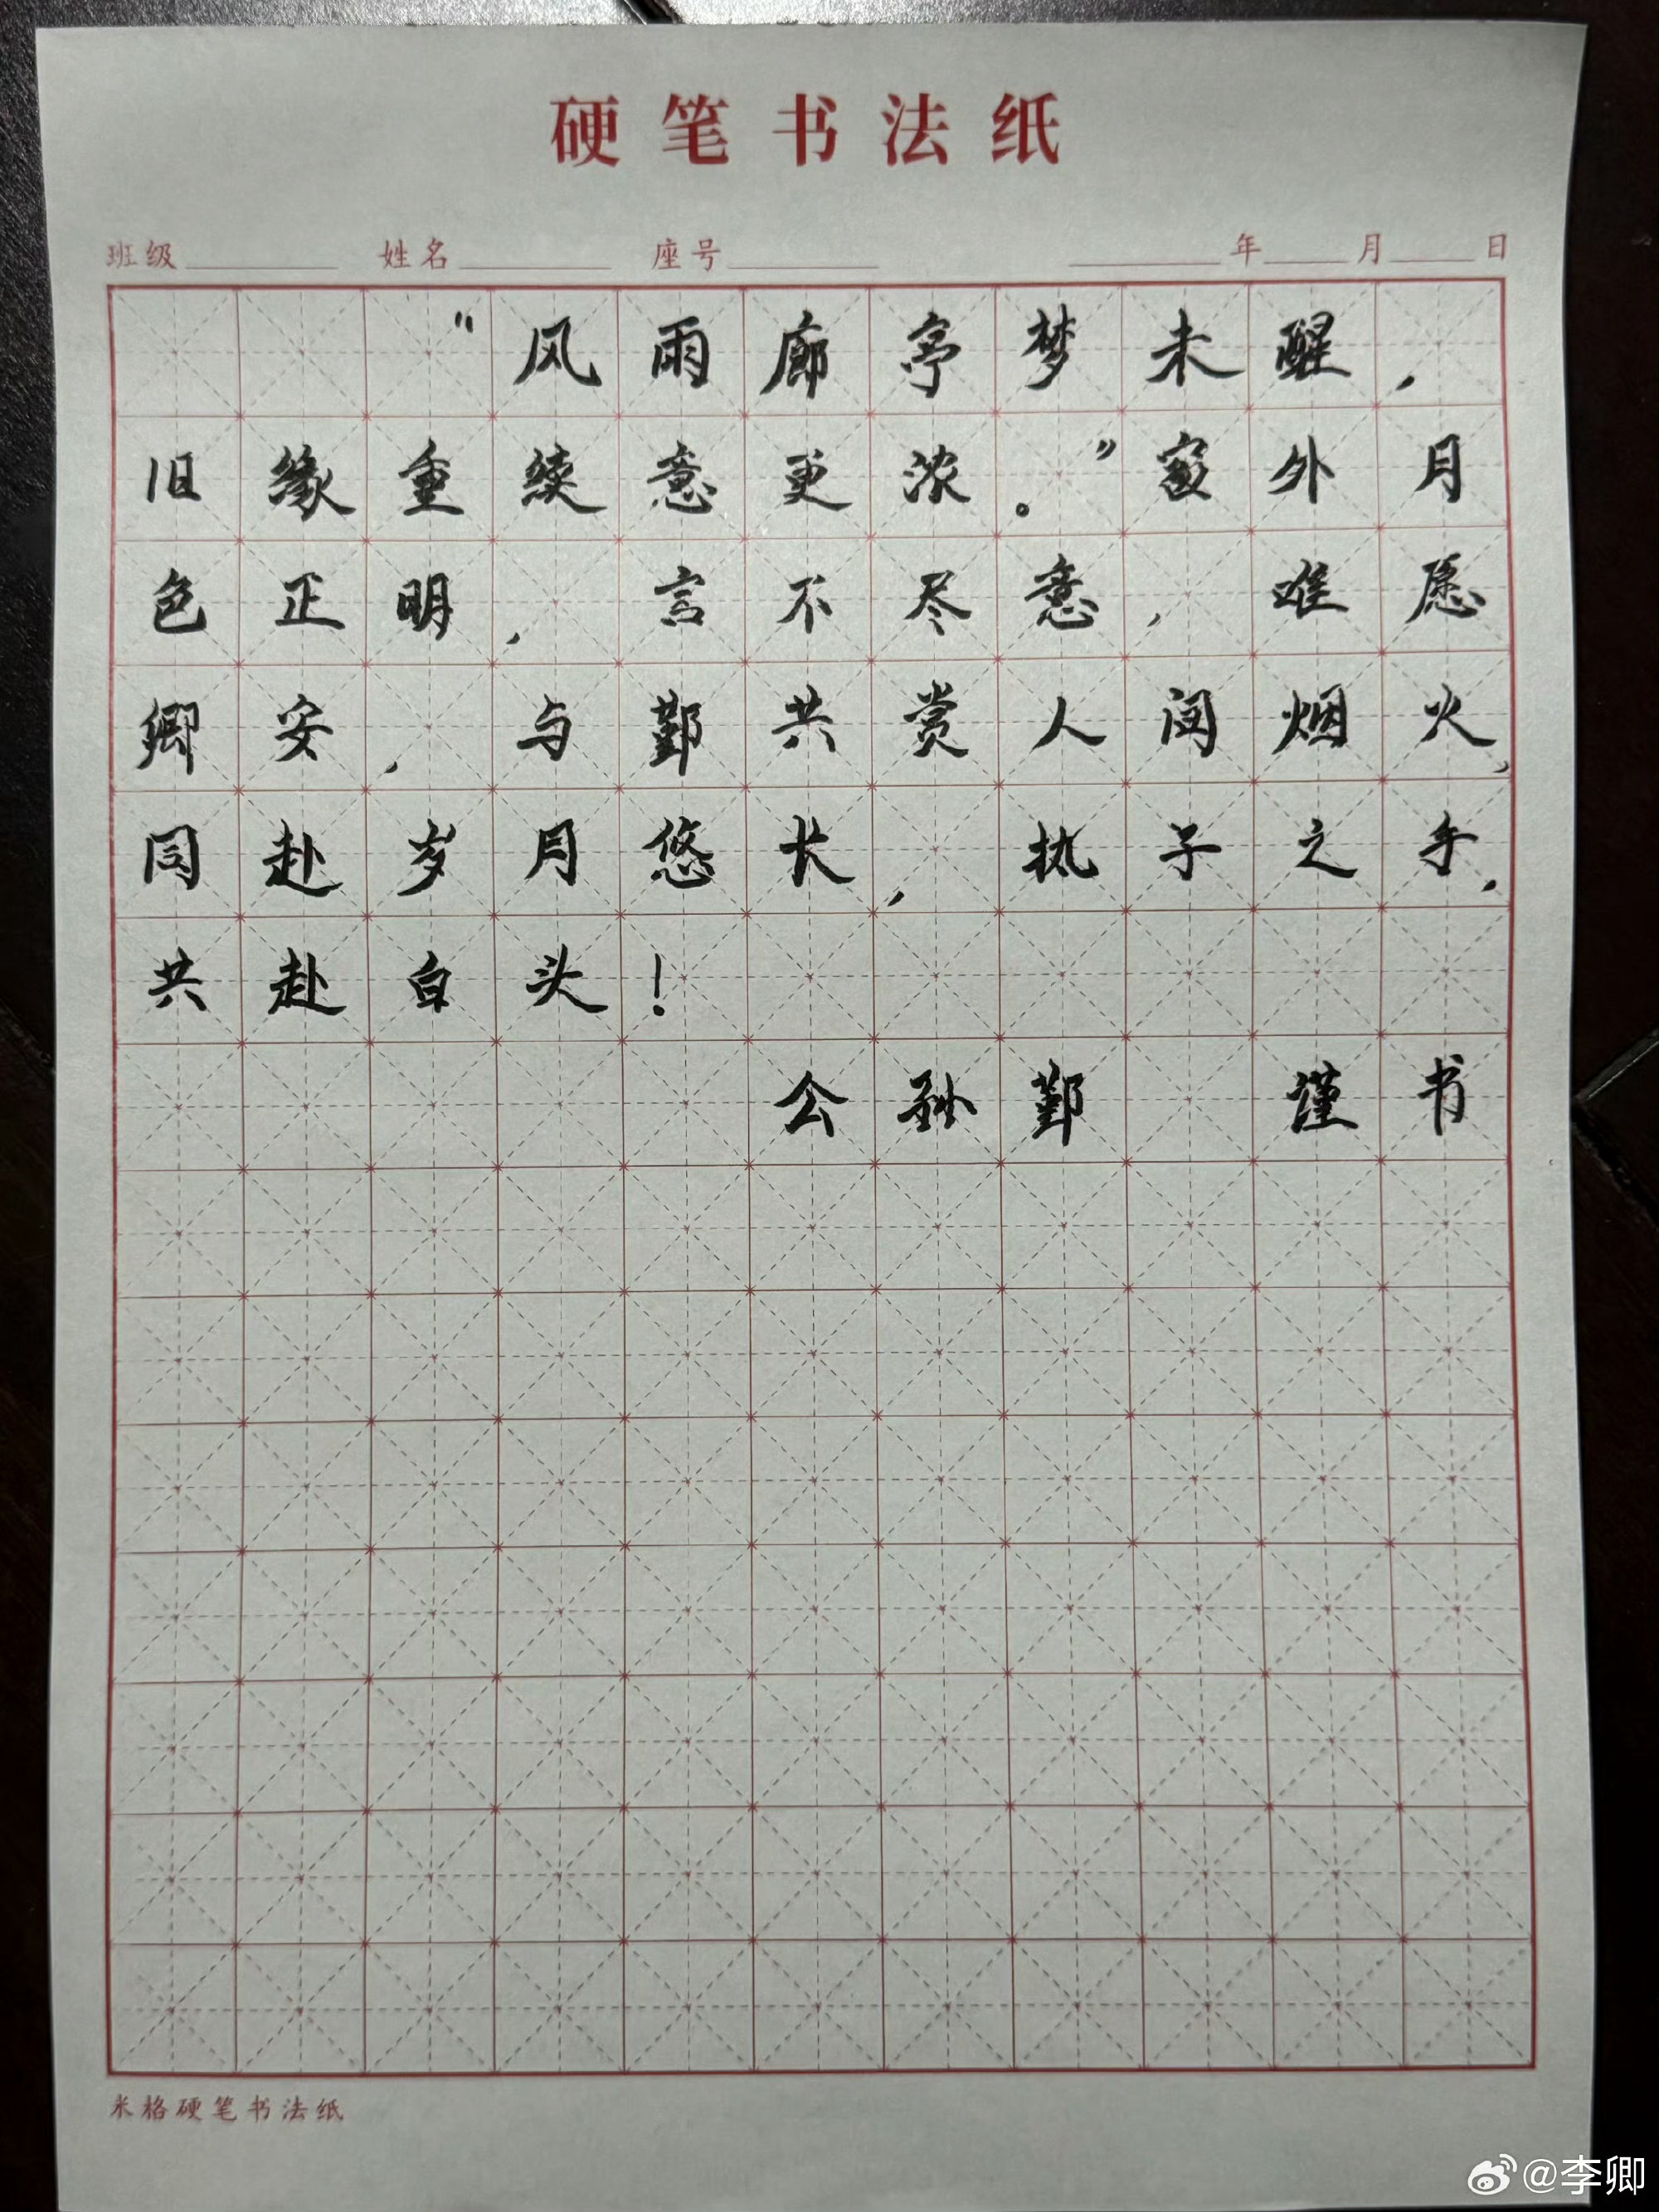 硬笔书法纸
班级 姓名 座号 年 月 日
“风雨廊亭梦未醒，
旧缘重续意更浓。”窗外月
色正明，言不尽意，唯愿
卿安，与鄞共赏人间烟火，
同赴岁月悠长，执子之手，
共赴白头！
公孙鄞 谨书
米格硬笔书法纸
@李卿